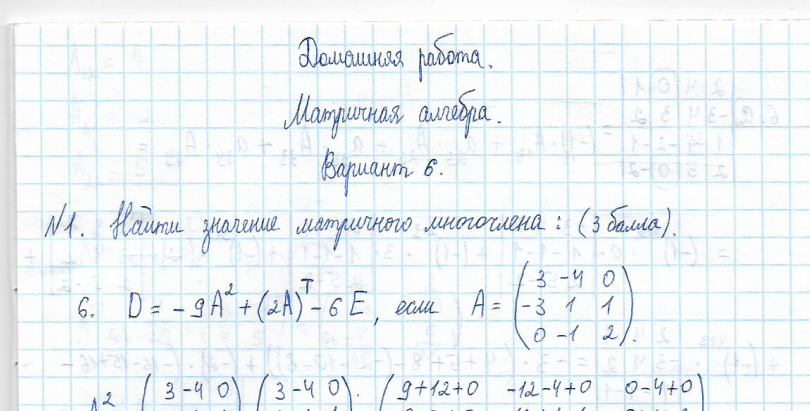 Домашняя работа.
Матричная алгебра.
Вариант 6.
№1. Найти значение матричного многочлена: (3 балла).
6. D = -9A² + (2A)ᵀ - 6E, если A = (3 -4 0
-3 1 1
0 -1 2).
A² (3 -4 0) (3 -4 0). (9+12+0 -12-4+0 0-4+0)